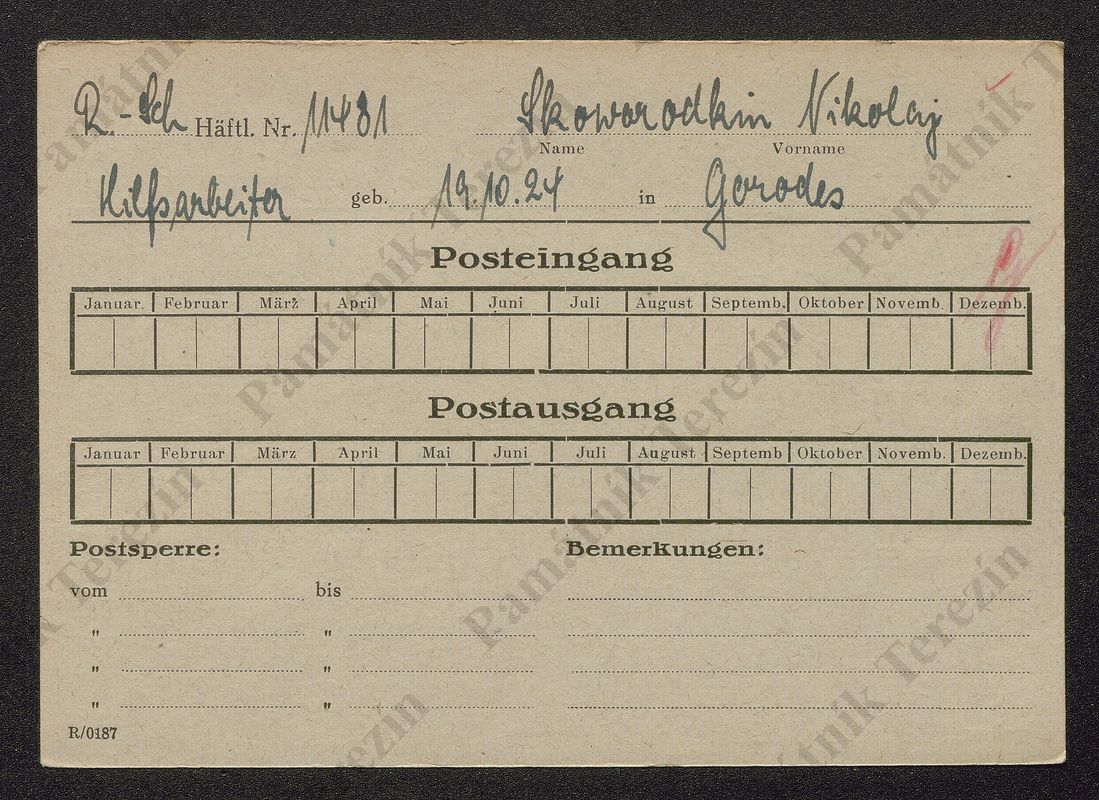 R.-Sch Häftl. Nr. 11481 Skoworodkin Nikolaj
Name Vorname
Hilfsarbeiter geb. 19.10.24 in Gorodes
Posteingang
Januar. Februar März April Mai Juni Juli August Septemb. Oktober Novemb. Dezemb.
Postausgang
Januar Februar März April Mai Juni Juli August Septemb Oktober Novemb. Dezemb.
Postsperre: Bemerkungen:
vom bis
" "
" "
" "
R/0187
Památník Terezín